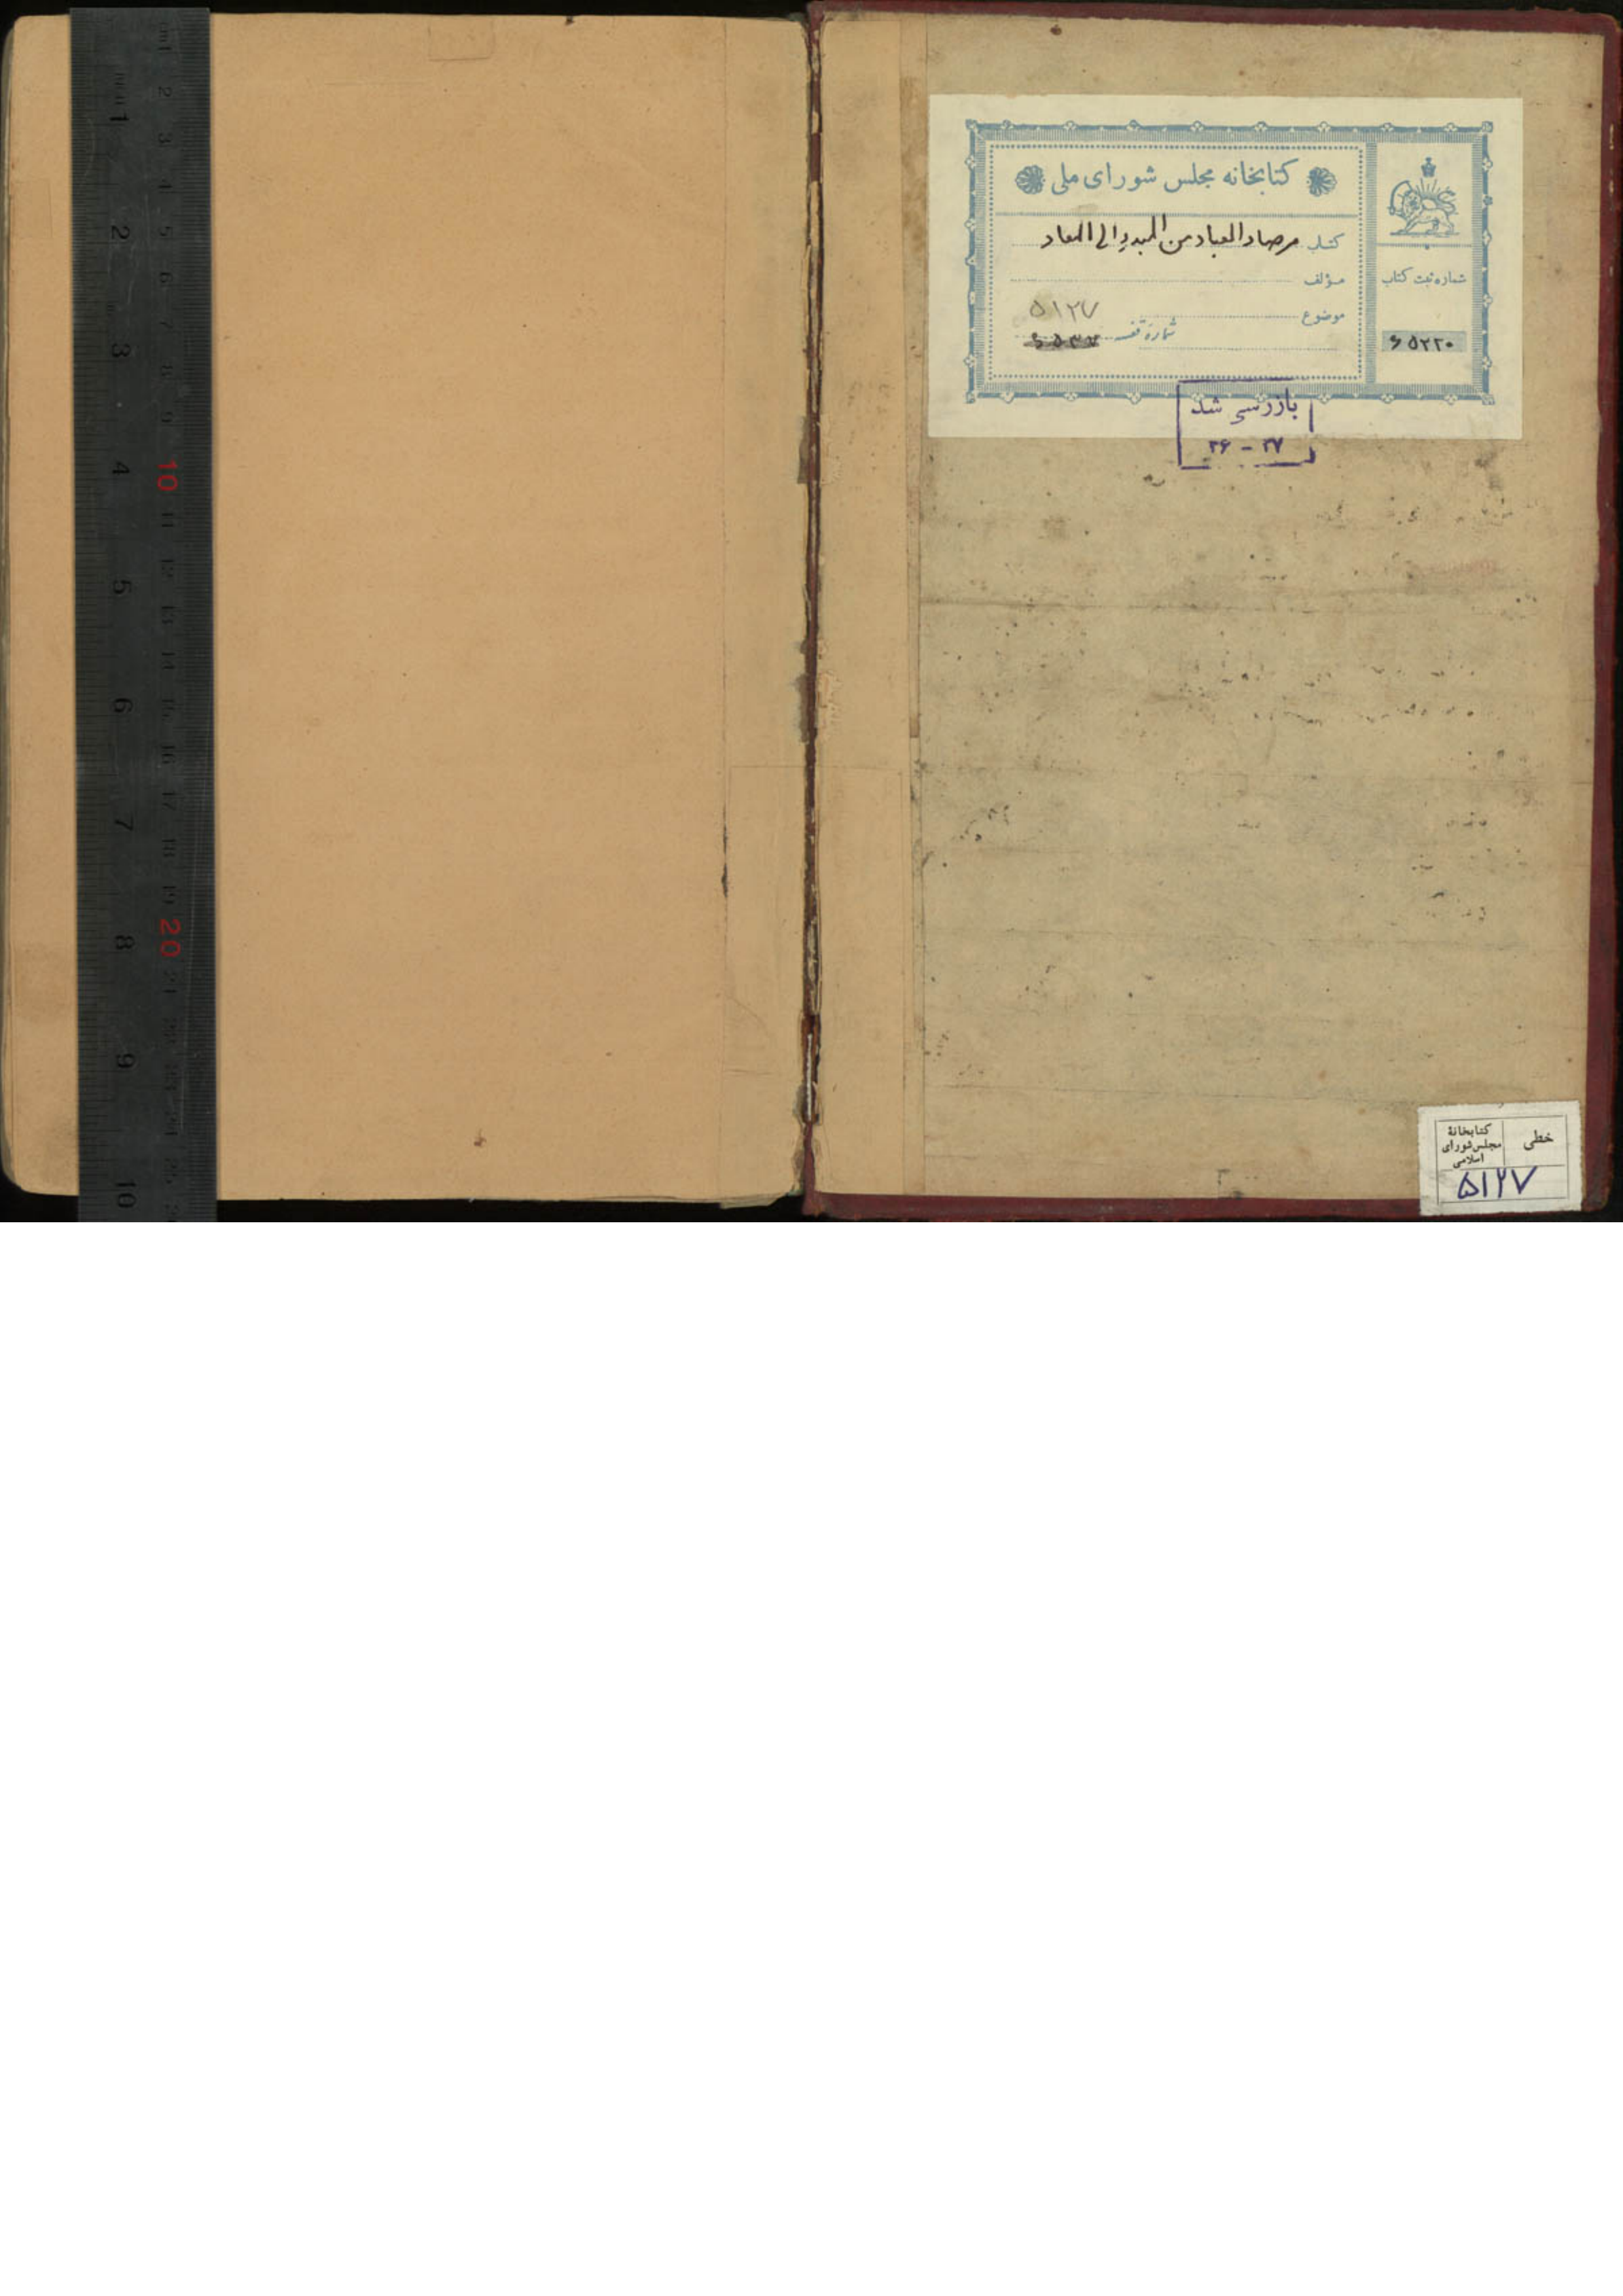 کتابخانه مجلس شورای ملی
کتاب مرصاد العباد من المبدء الی المعاد
مؤلف
موضوع
۵۱۲۷
شماره قفسه
شماره ثبت کتاب
۶۵۲۲۰
بازرسی شد
۳۶ - ۳۷
خطی
کتابخانهٔ
مجلس شورای
اسلامی
۵۱۲۷
1 2 3 4 5 6 7 8 9 10
10 20